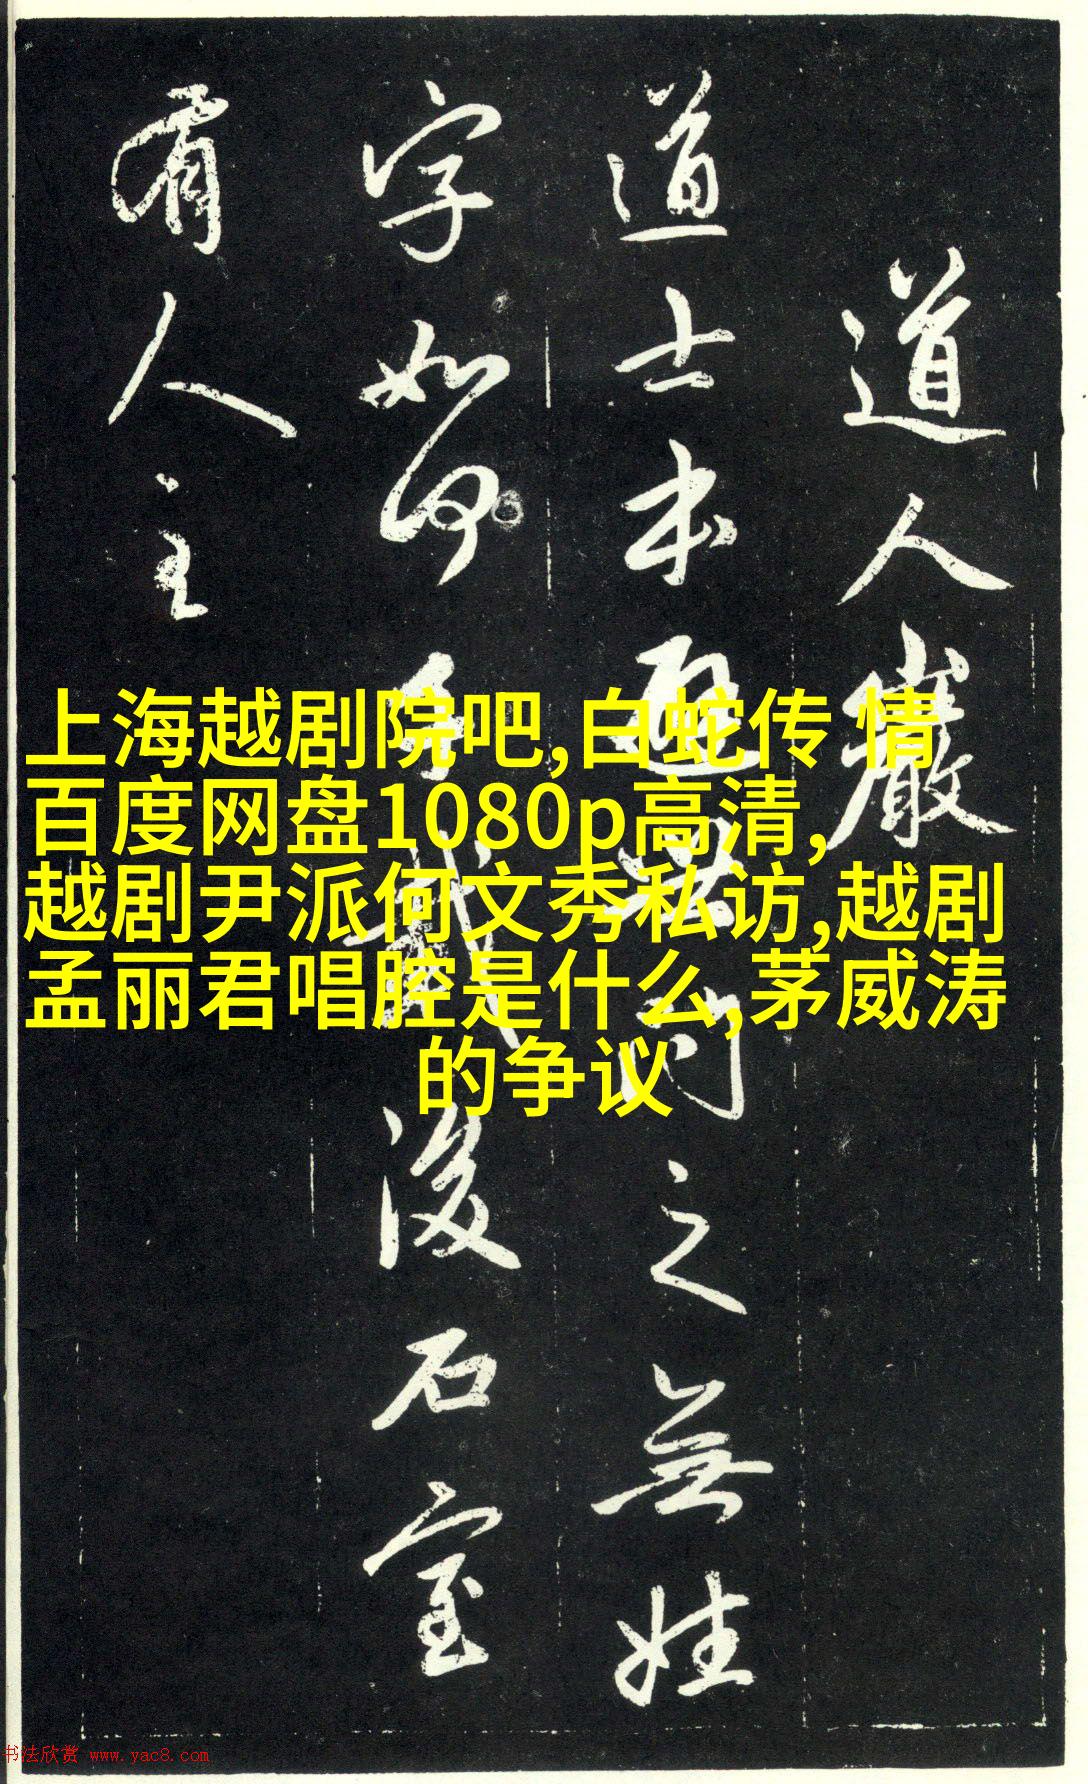 道人巖
道士本避世問之無姓
字如何
後石室
有人主
上海越剧院吧,白蛇传 情
百度网盘1080p高清,
越剧尹派何文秀私访,越剧
孟丽君唱腔是什么,茅威涛
的争议
书法欣赏 www.yac8.com